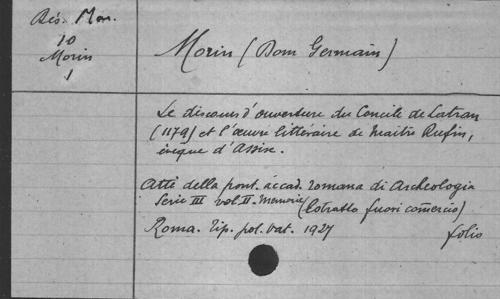 Rés. Mon.
10
Morin
1
Morin (Dom Germain)
Le discours d'ouverture du Concile de Latran
(1179) et l'œuvre littéraire de Maître Rufin,
évêque d'Assise.
Atti della pont. accad. romana di Archeologia
Serie III vol. II. Memorie (Estratto fuori comercio)
Roma. Tip. pol. vat. 1927
folio